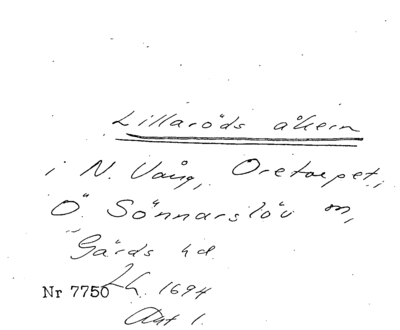 Lillaröds åkern
i N. Vång, Oretorpet,
Ö. Sönnarslöv sn,
Gärds hd
Lh. 1694
Nr 7750
Akt 1.